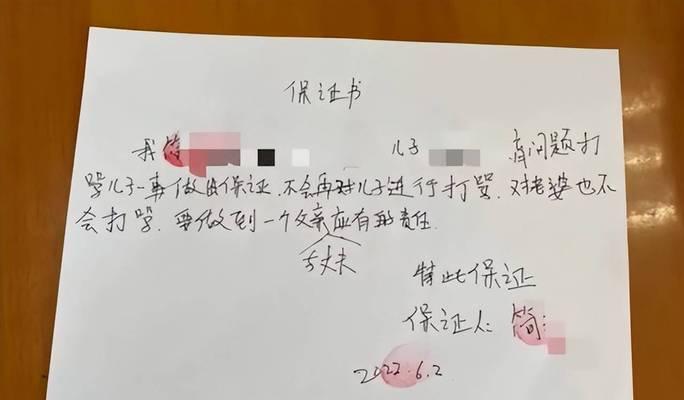 保证书
我简 儿子 有问题打
骂儿子一事做出保证.不会再对儿子进行打骂.对老婆也不
会打骂.要做到一个父亲应有的责任.
与丈夫
特此保证
保证人:简
2022.6.2